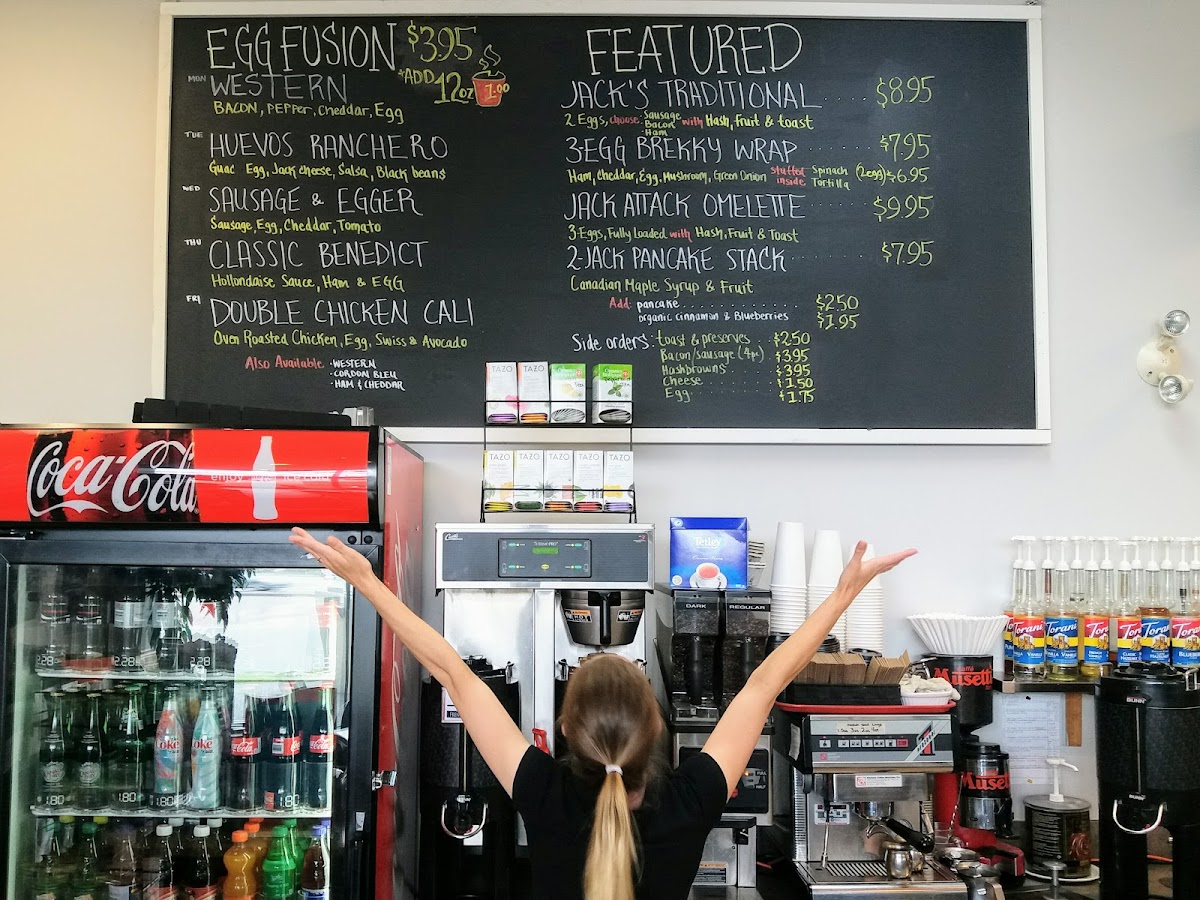 EGG FUSION $3.95
+ADD 12oz 1.00
MON WESTERN
BACON, PEPPER, Cheddar, Egg
TUE HUEVOS RANCHERO
Guac Egg, Jack cheese, Salsa, Black beans
WED SAUSAGE & EGGER
Sausage, Egg, Cheddar, Tomato
THU CLASSIC BENEDICT
Hollondaise Sauce, Ham & EGG
FRI DOUBLE CHICKEN CALI
Oven Roasted Chicken, Egg, Swiss & Avocado
Also Available · WESTERN
· CORDON BLEU
· HAM & CHEDDAR
FEATURED
JACK'S TRADITIONAL $8.95
2 Eggs, choose: Sausage Bacon Ham with Hash, Fruit & toast
3-EGG BREKKY WRAP $7.95
Ham, Cheddar, Egg, Mushroom, Green Onion stuffed inside Spinach Tortilla (2egg) $6.95
JACK ATTACK OMELETTE $9.95
3-Eggs, Fully Loaded with Hash, Fruit & Toast
2-JACK PANCAKE STACK $7.95
Canadian Maple Syrup & Fruit
Add: pancake $2.50
organic cinnamon & Blueberries $1.95
Side orders: toast & preserves $2.50
Bacon/sausage (4pc) $3.95
Hashbrowns $3.95
Cheese $1.50
Egg $1.75
TAZO TAZO
TAZO TAZO TAZO TAZO TAZO
Coca-Cola
enjoy
Tetley
DARK REGULAR
Musetti
Musetti
Torani Torani Torani Torani Torani Torani
BUNN
BUNN
2.28 2.28 2.28
1.80 1.80 1.80
coke
coke
Coca-Cola